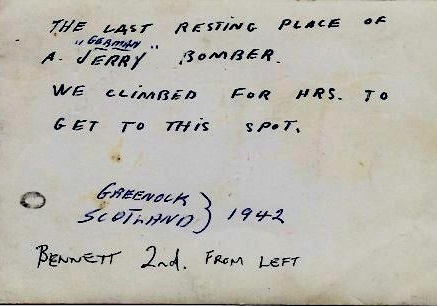 THE LAST RESTING PLACE OF
"GERMAN"
A. JERRY BOMBER.
WE CLIMBED FOR HRS. TO
GET TO THIS SPOT.
GREENOCK
SCOTLAND} 1942
BENNETT 2nd. FROM LEFT